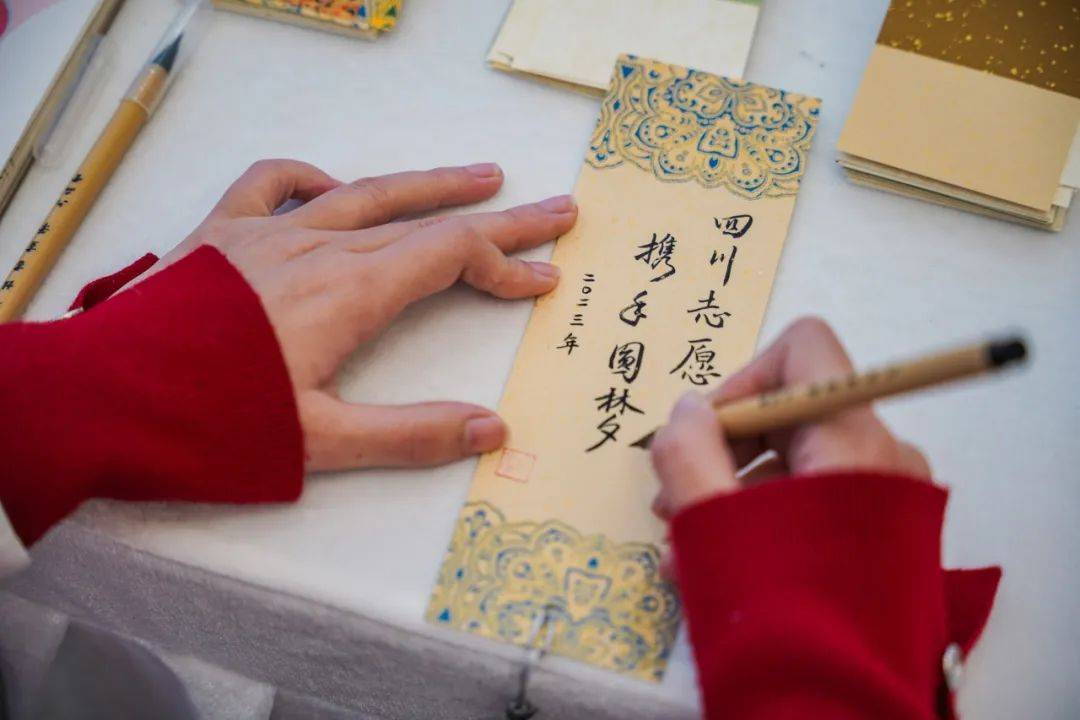 四川志愿
携手圆梦
二〇二三年